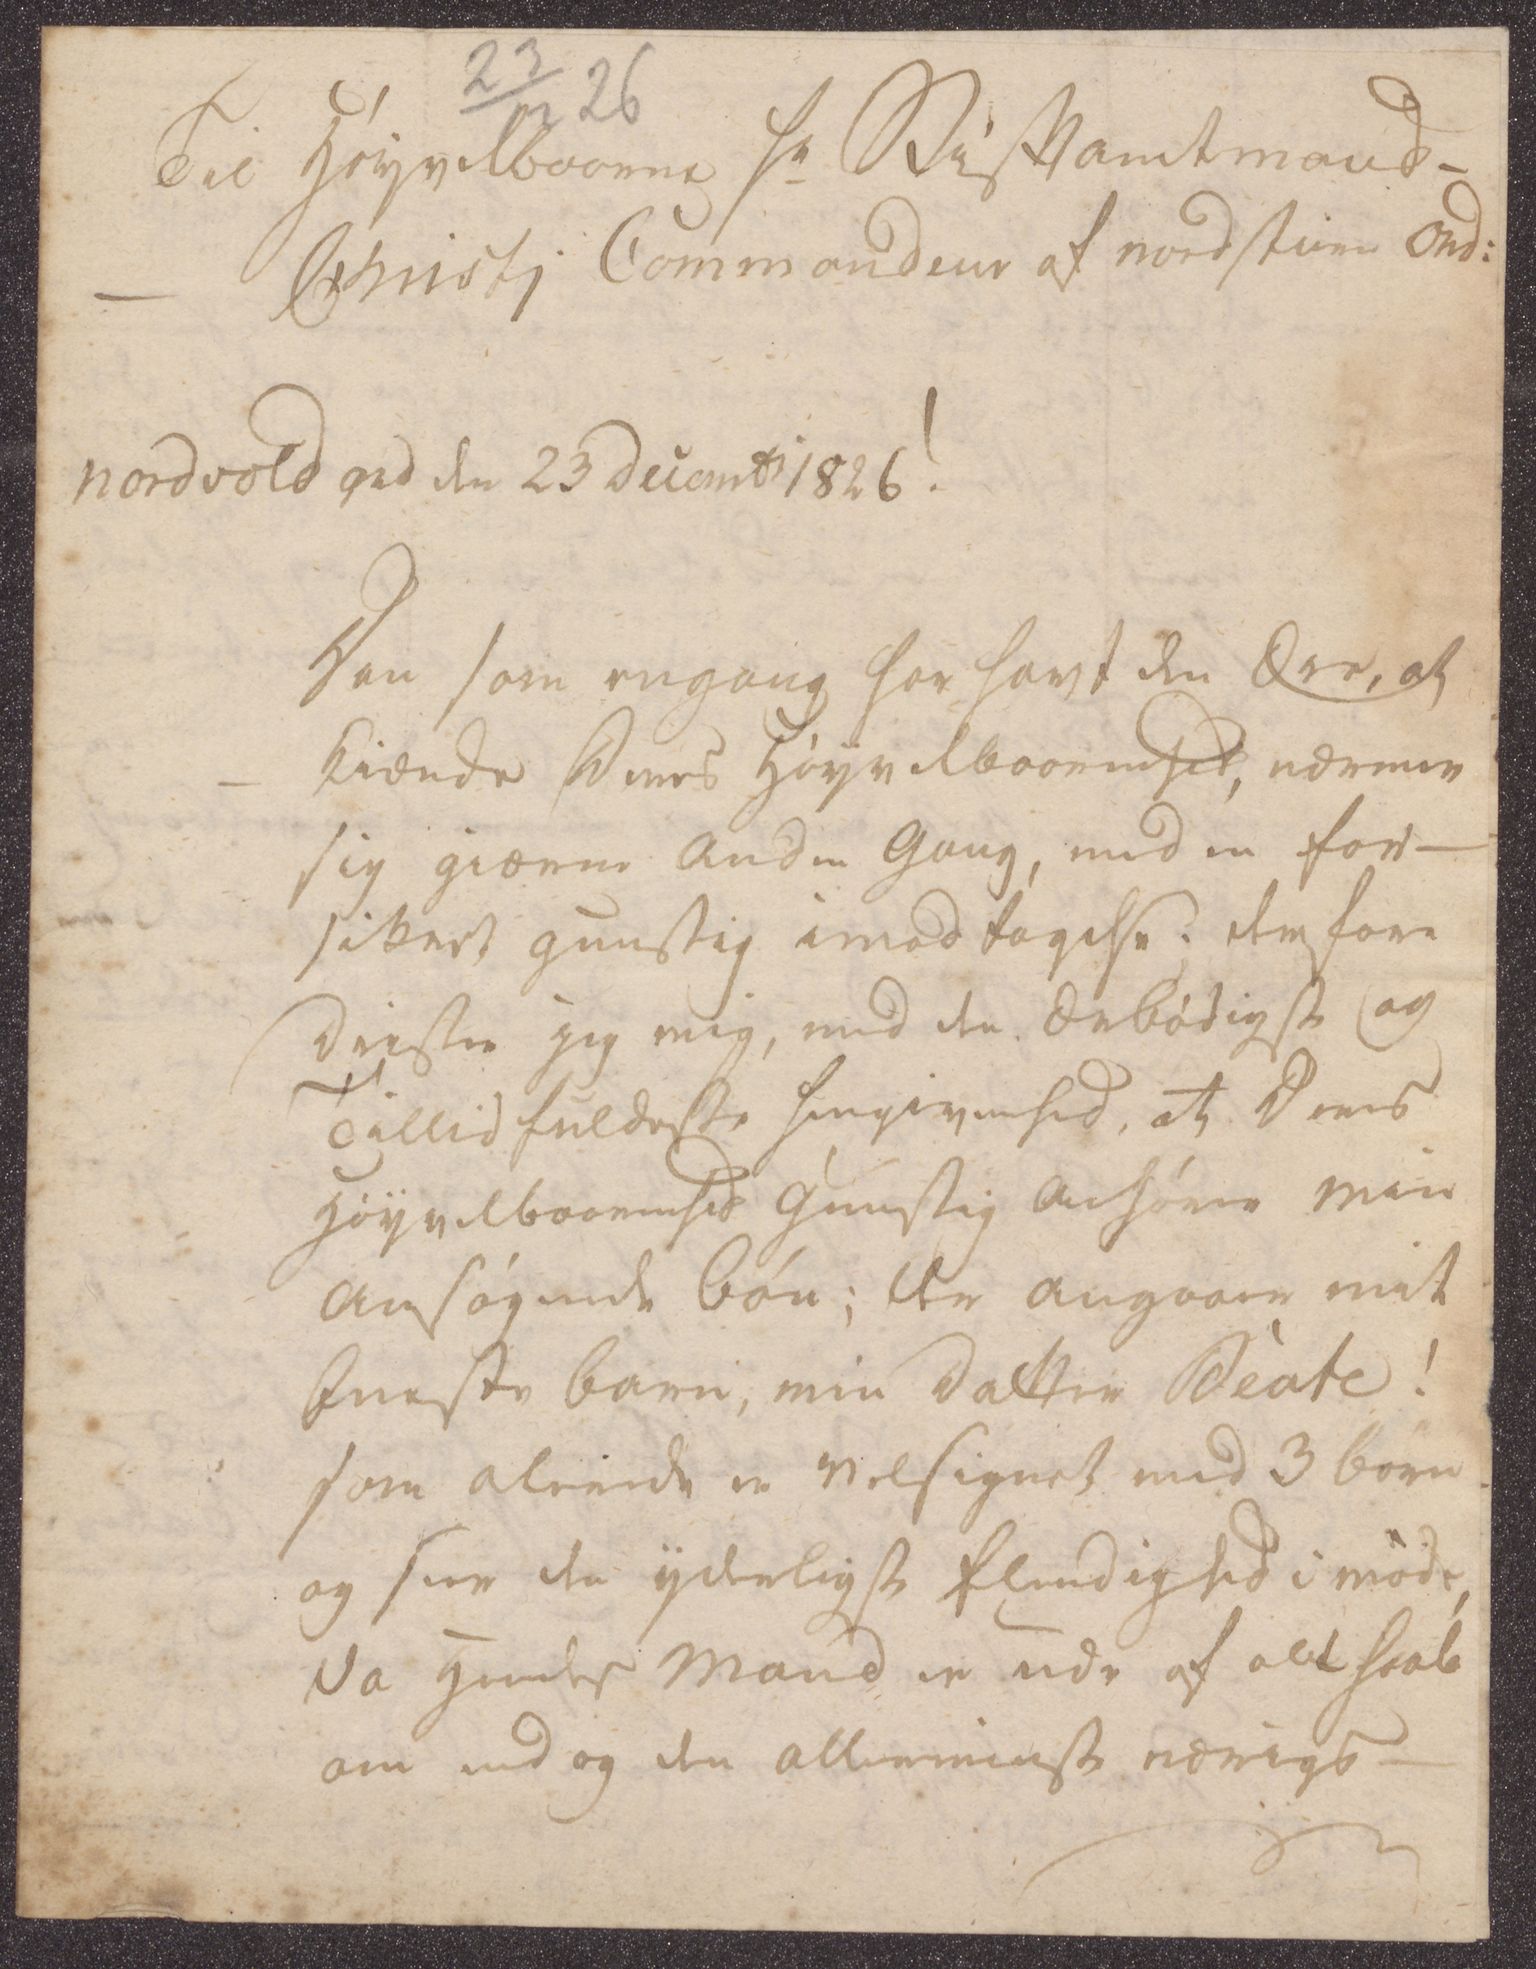 23/12 26
Til Høyvelbaarne Hr Stiftamtmand
Christj Commandeur af nordstiern Ord:
nordvold ved den 23 Decembr 1826!
Den som engang har havt den Ære, at
kiende Deres Høyvelbaarenhed, nærmer
sig gierne anden Gang, med en for-
sikert gunstig imodtagelse; derfore
drister jeg mig, med den Ærbødigste og
Tillidfuldeste hengivenhed, at Deres
Høyvelbaarenhed Gunstig anhører min
ansøgende bøn; der angaaer mit
Eneste barn, min Datter Beate!
som alerede er velsignet med 3 børn
og seer den yderligste Elendighed i møde,
da Hendes Mand er ude af alt haab
om ved og den allermindste nærigs-